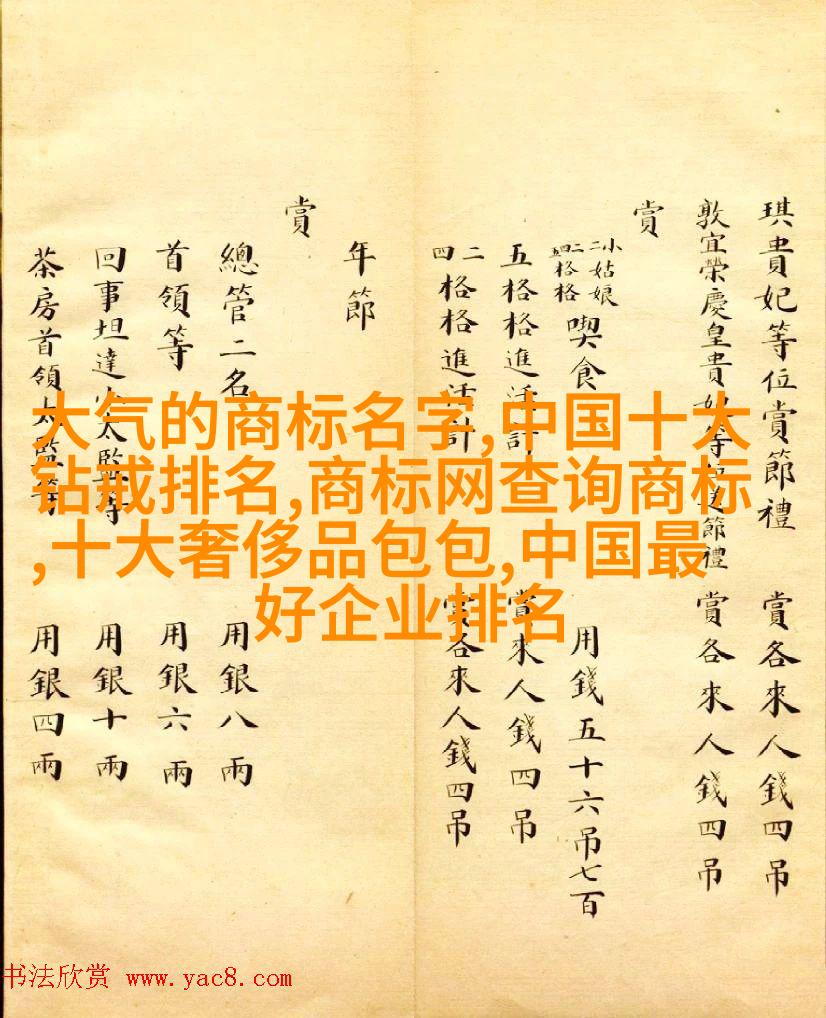 琪貴妃等位賞節禮 賞各來人錢四吊
敦宜榮慶皇貴妃等位送節禮 賞各來人錢四吊
賞
小姑娘
二二格格
四格格
喫食 用錢五十六吊七百
五格格進活計 賞來人錢四吊
二四格格進活計 賞各來人錢四吊
年節
賞
總管二名 用銀八兩
首領等 用銀六兩
回事坦達小太監等 用銀十兩
茶房首領太監等 用銀四兩
大气的商标名字,中国十大
钻戒排名,商标网查询商标
,十大奢侈品包包,中国最
好企业排名
书法欣赏 www.yac8.com